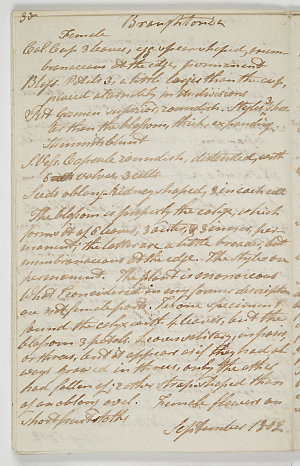 33
Braughtonia
Female
Cal. Cup. 3 leaves, egg spear shaped, mem-
branaceous at the edge, permanent
Bloss. Petals 3, a little larger than the cup,
placed alternately in its divisions
Shaft Germen superior, roundish. Styles 3 shor-
ter than the blossom, thick, expanding
Summits blunt
S.Vess. Capsule roundish, distended, with
6 valves, 3 cells
Seeds oblong-kidney shaped, 2 in each cell
The blossom is properly the calyx, which
forms it of 6 leaves, 3 outer & 3 inner, per-
manent; the latter are a little broader, but
membranaceous at the edge. The styles are
permanent. The plant is monoecious
what I considered in my former description
as not female parts. In one specimen I
found the calyx with 4 leaves, but the
blossom 3 petals. Leaves solitary, in pairs,
or threes, and it appears as if they had al-
ways growed in threes, only the others
had fallen off; rather strap shaped than
of an oblong oval. Female flowers on
short fruitstalks
September 1802